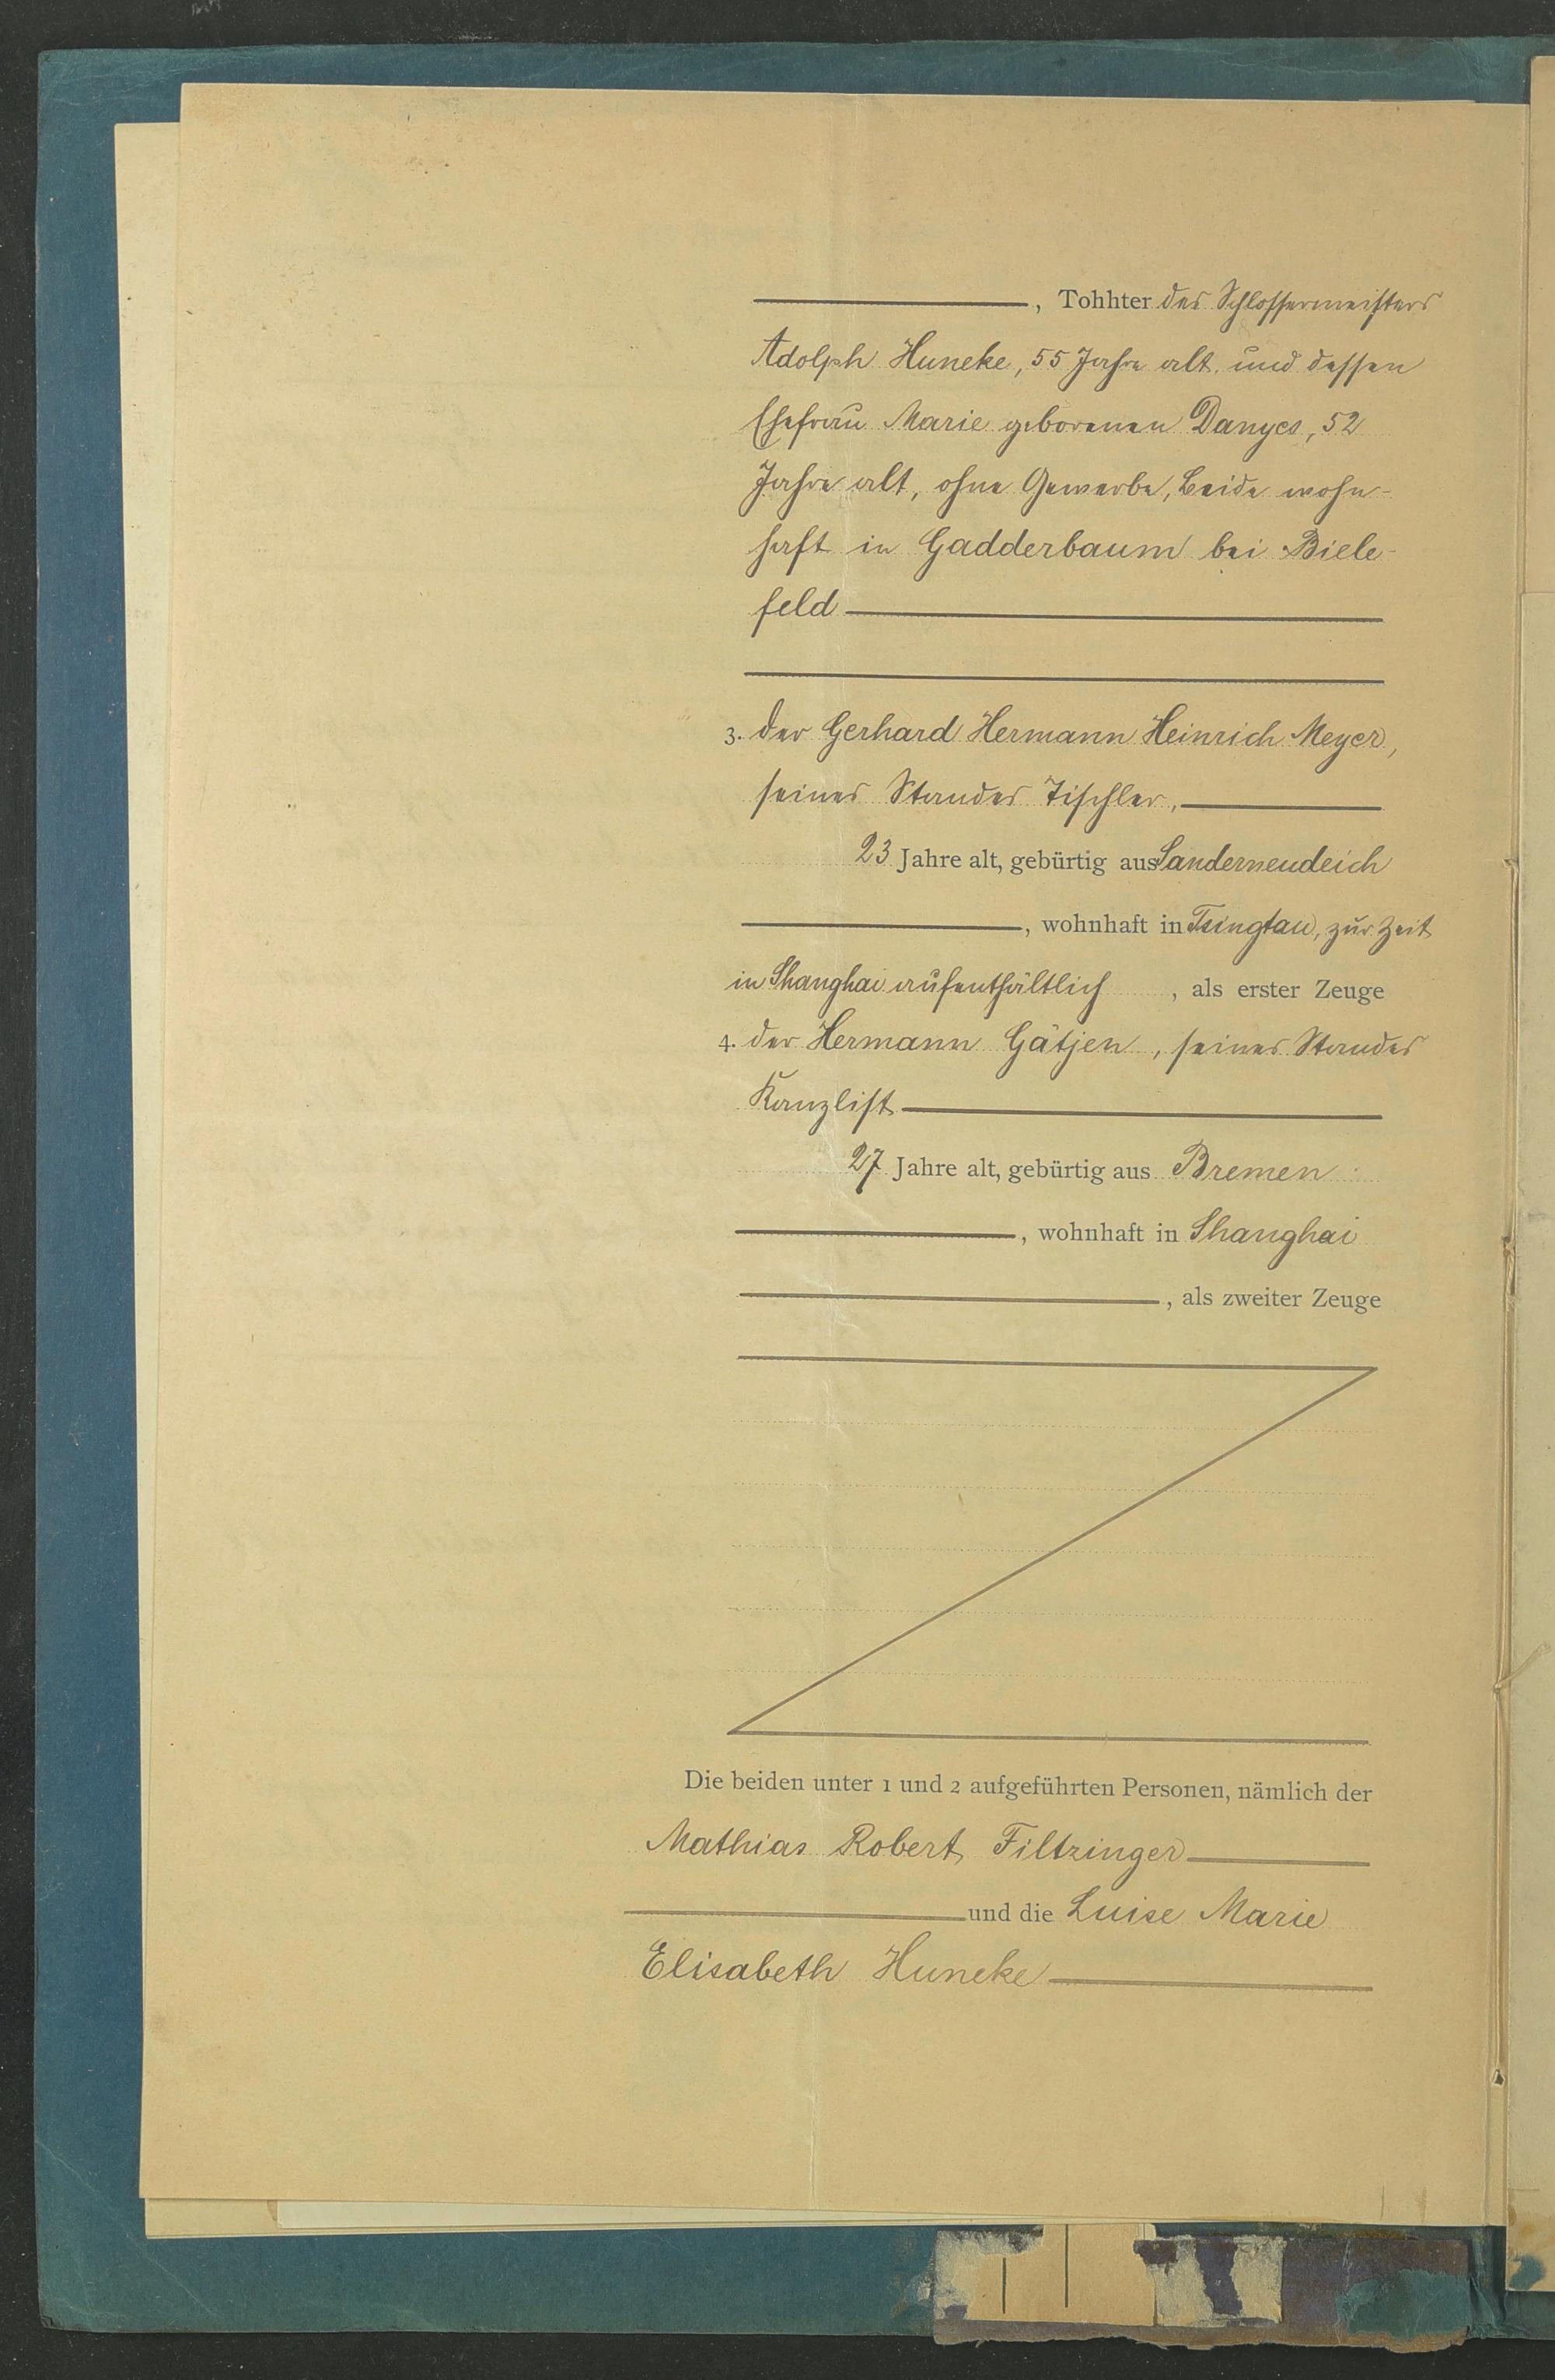 , Tohhter des Schlossermeisters
Adolph Huneke, 55 Jahre alt. und dessen
Ehefrau Marie geborenen Danyes, 52
Jahre alt, ohne Gewerbe, beide wohn-
haft in Gadderbaum bei Biele-
feld
3. der Gerhard Hermann Heinrich Meyer,
seines Standes Tischler,
23 Jahre alt, gebürtig aus Sanderneudeich
, wohnhaft in Tsingtau, zur Zeit
in Shanghai aufenthältlich , als erster Zeuge
4. der Hermann Gätjen, seines Standes
Kanzlist
27 Jahre alt, gebürtig aus Bremen
, wohnhaft in Shanghai
, als zweiter Zeuge
Die beiden unter 1 und 2 aufgeführten Personen, nämlich der
Mathias Robert Filtzinger
und die Luise Marie
Elisabeth Huneke